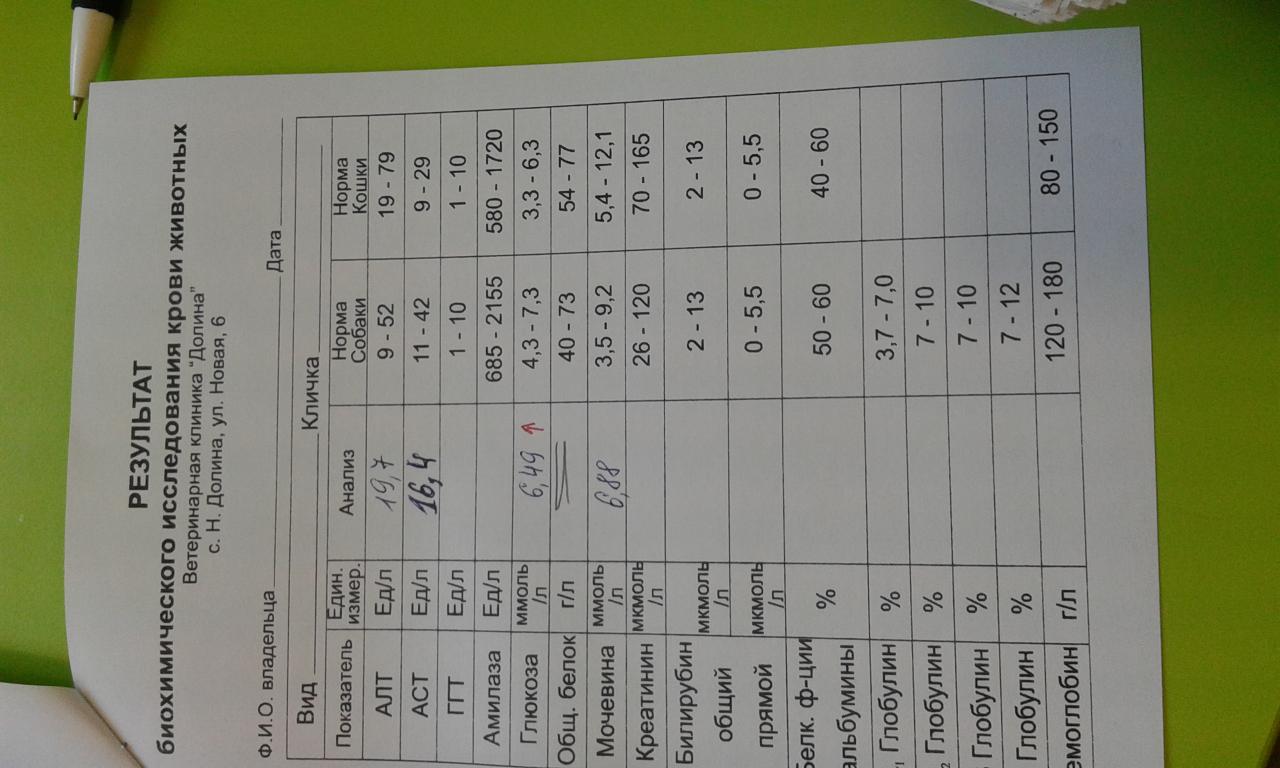 РЕЗУЛЬТАТ
биохимического исследования крови животных
Ветеринарная клиника "Долина"
с. Н. Долина, ул. Новая, 6
Ф.И.О. владельца Дата
Вид Кличка
Показатель Един. измер. Анализ Норма Собаки Норма Кошки
АЛТ Ед/л 19,7 9 - 52 19 - 79
АСТ Ед/л 16,4 11 - 42 9 - 29
ГГТ Ед/л 1 - 10 1 - 10
Амилаза Ед/л 685 - 2155 580 - 1720
Глюкоза ммоль/л 6,49 ↑ 4,3 - 7,3 3,3 - 6,3
Общ. белок г/л 40 - 73 54 - 77
Мочевина ммоль/л 6,88 3,5 - 9,2 5,4 - 12,1
Креатинин мкмоль/л 26 - 120 70 - 165
Билирубин
общий мкмоль/л 2 - 13 2 - 13
прямой мкмоль/л 0 - 5,5 0 - 5,5
Белк. ф-ции
альбумины % 50 - 60 40 - 60
1 Глобулин % 3,7 - 7,0
2 Глобулин % 7 - 10
Глобулин % 7 - 10
Глобулин % 7 - 12
емоглобин г/л 120 - 180 80 - 150